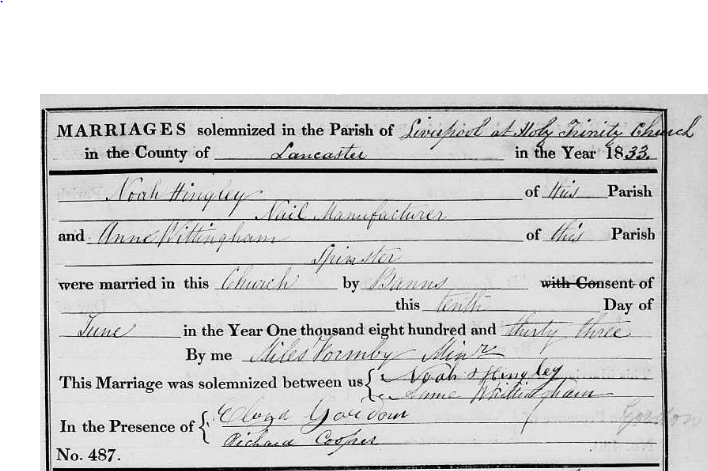 MARRIAGES solemnized in the Parish of Liverpool at Holy Trinity Church
in the County of Lancaster in the Year 1833.
Noah Hingley of this Parish
Nail Manufacturer
and Anne Wittingham of this Parish
Spinster
were married in this Church by Banns with Consent of
this tenth Day of
June in the Year One thousand eight hundred and thirty three
By me Miles Formby Minr
This Marriage was solemnized between us { Noah Hingley
Anne Whittingham
In the Presence of {
Richard Cooper
Gordon
No. 487.